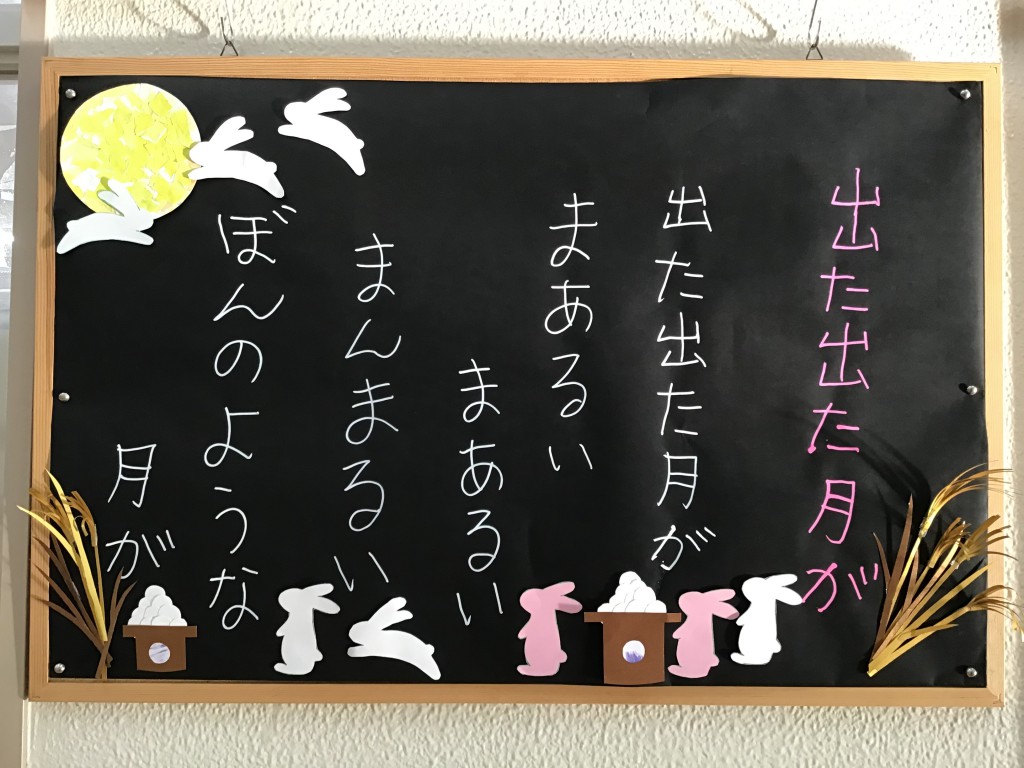 出た出た月が
出た出た月が
まあるい
まあるい
まんまるい
ぼんのような
月が